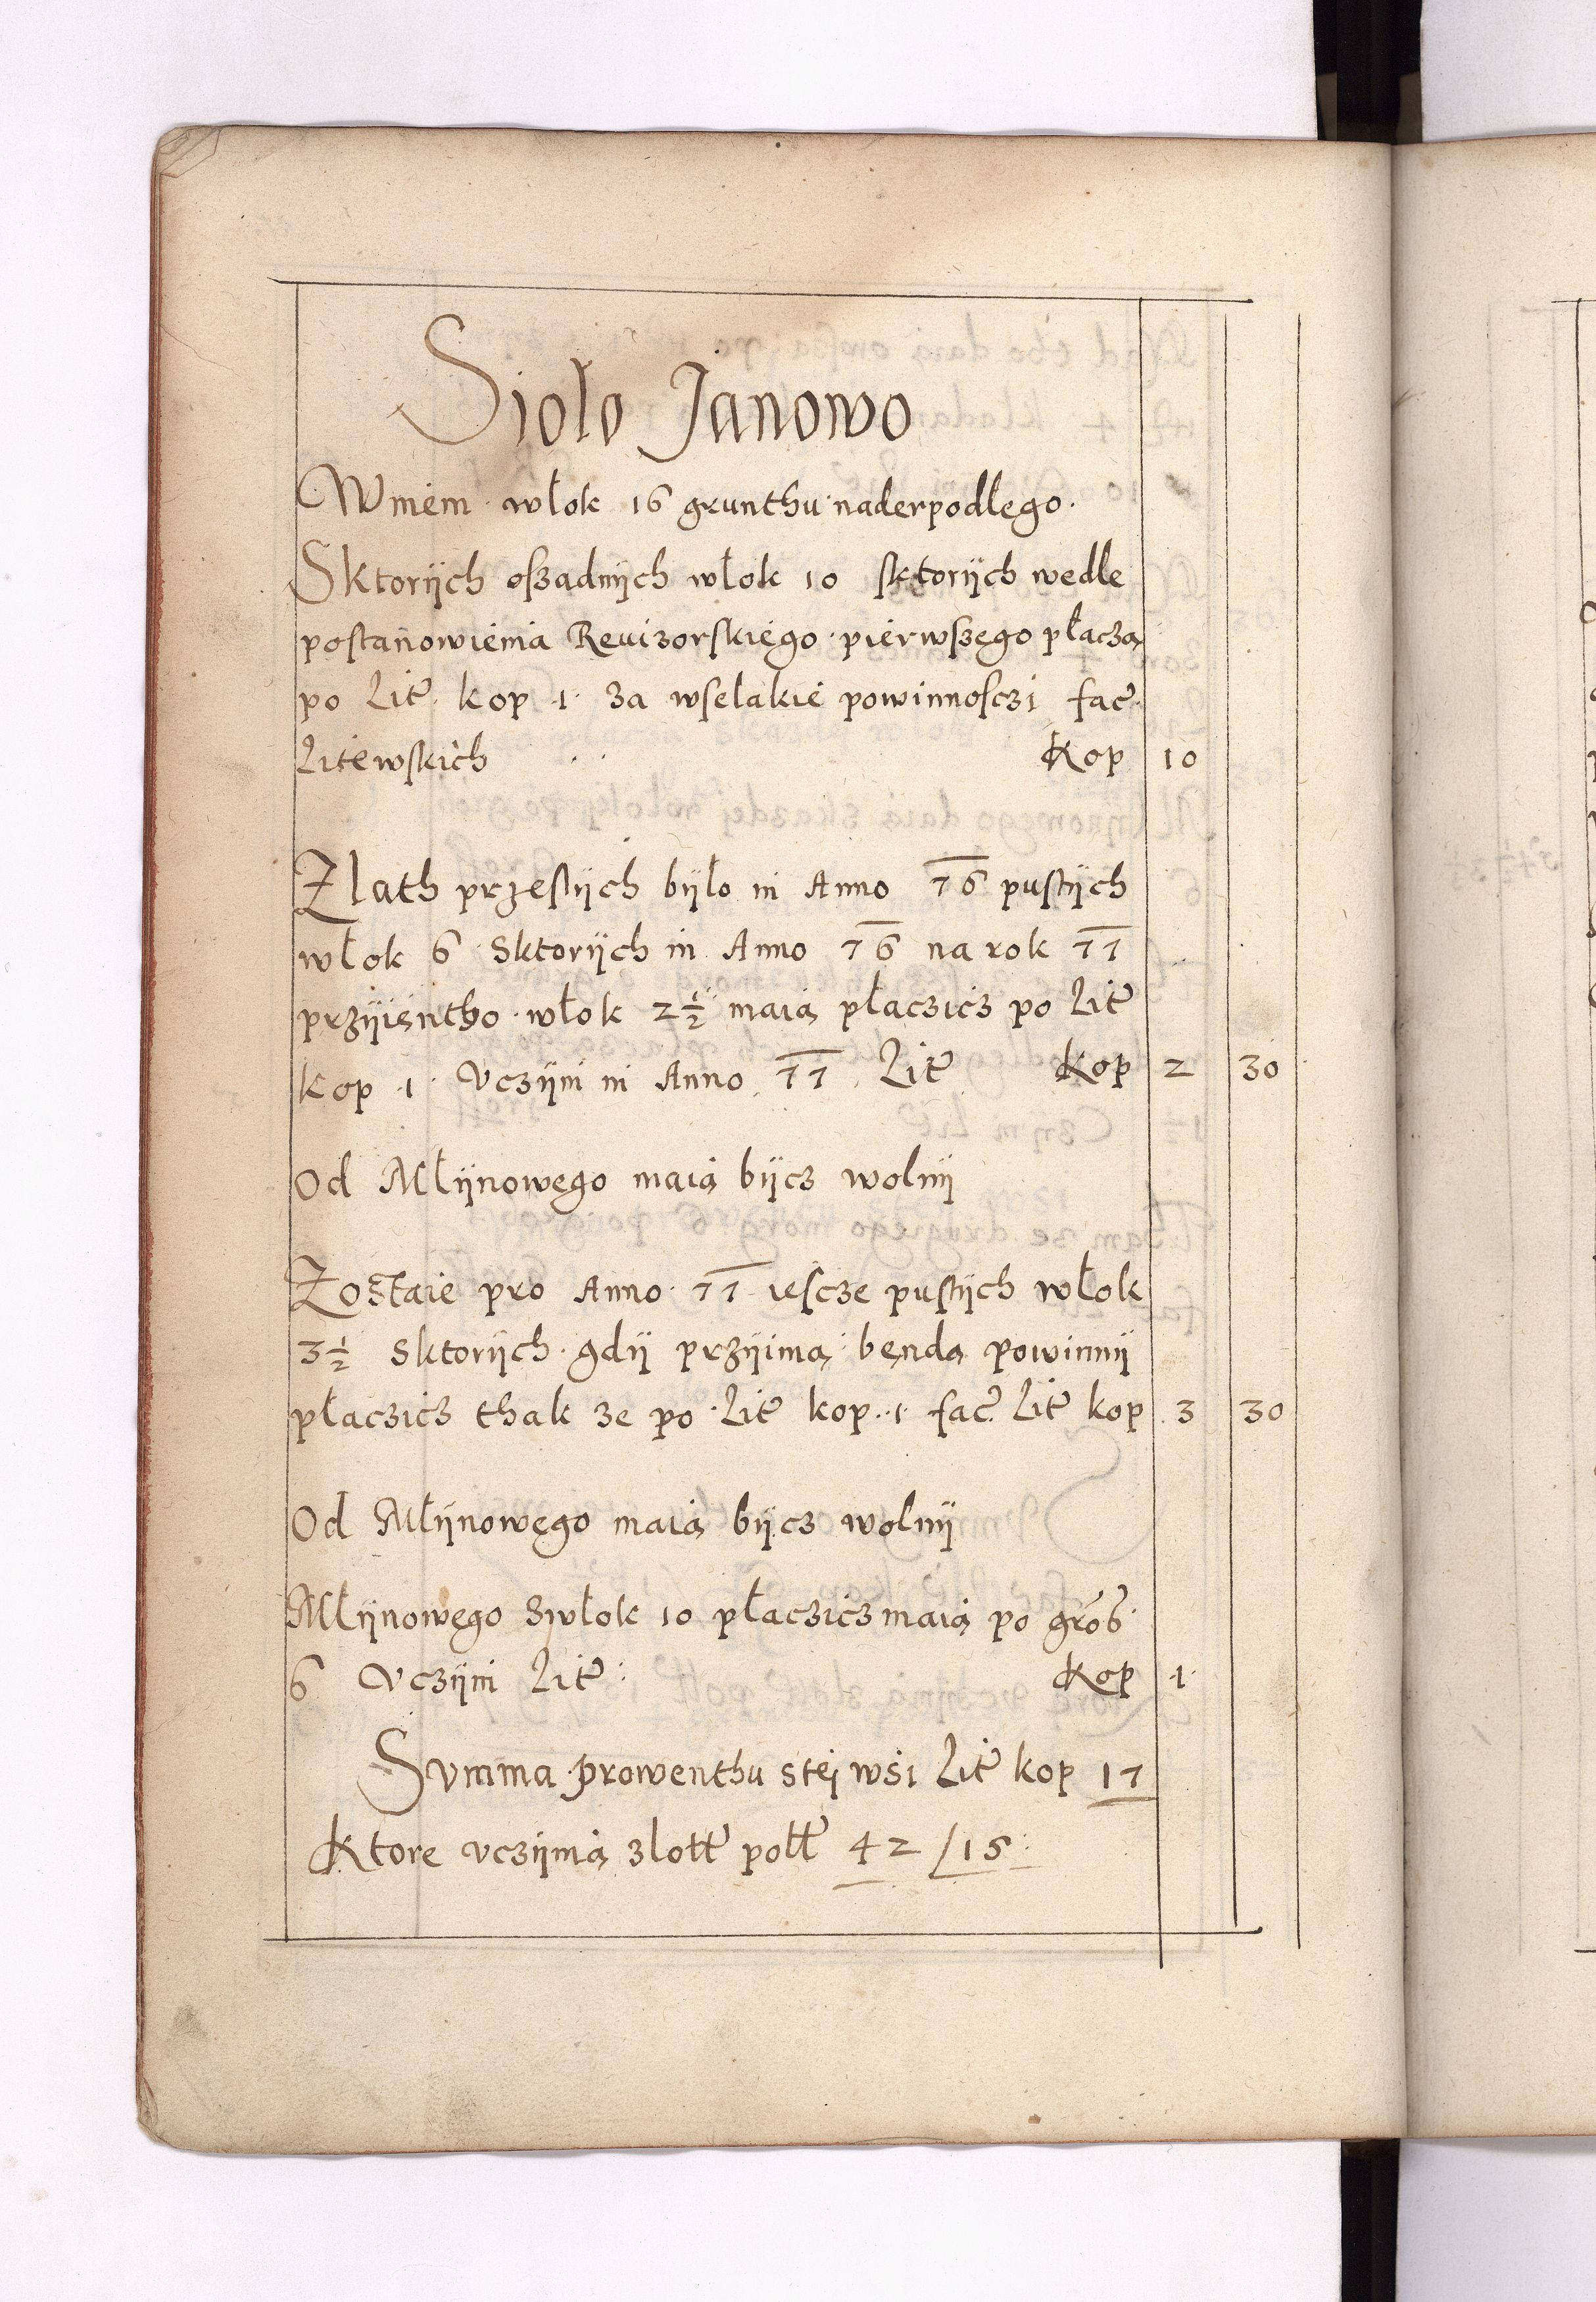 Siolo Janowo
W niem włok 16 grunthu naderpodlego
Sktorÿch oszadnÿch włok 10 sktorÿch wedle
postanowienia Reuizorskiego pierwszego płacza
po Lit kop 1 za wselakie powinnosczi fac
Litewskich Kop 10
Zlath przestÿch bÿlo in Anno 76 pustÿch
włok 6 Sktorÿch in Anno 76 na rok 77
przÿientho włok 2½ maią płaczicz po Lit
kop 1 Vczÿni in Anno 77 Lit Kop 2 30
Od Młÿnowego maią bÿcz wolnÿ
Zostaie pro Anno 77 iescze pustÿch włok
3½ Sktorÿch gdÿ przÿimą bendą powinnÿ
płaczicz thak ze po Lit kop 1 fac Lit kop 3 30
Od Młÿnowego maią bÿcz wolnÿ
Młÿnowego zwłok 10 płaczicz maią po gros
6 Vczÿni Lit Kop 1
Summa prowenthu stej wsi Lit kop 17
Ktore vczÿnią zlott poll 42 / 15